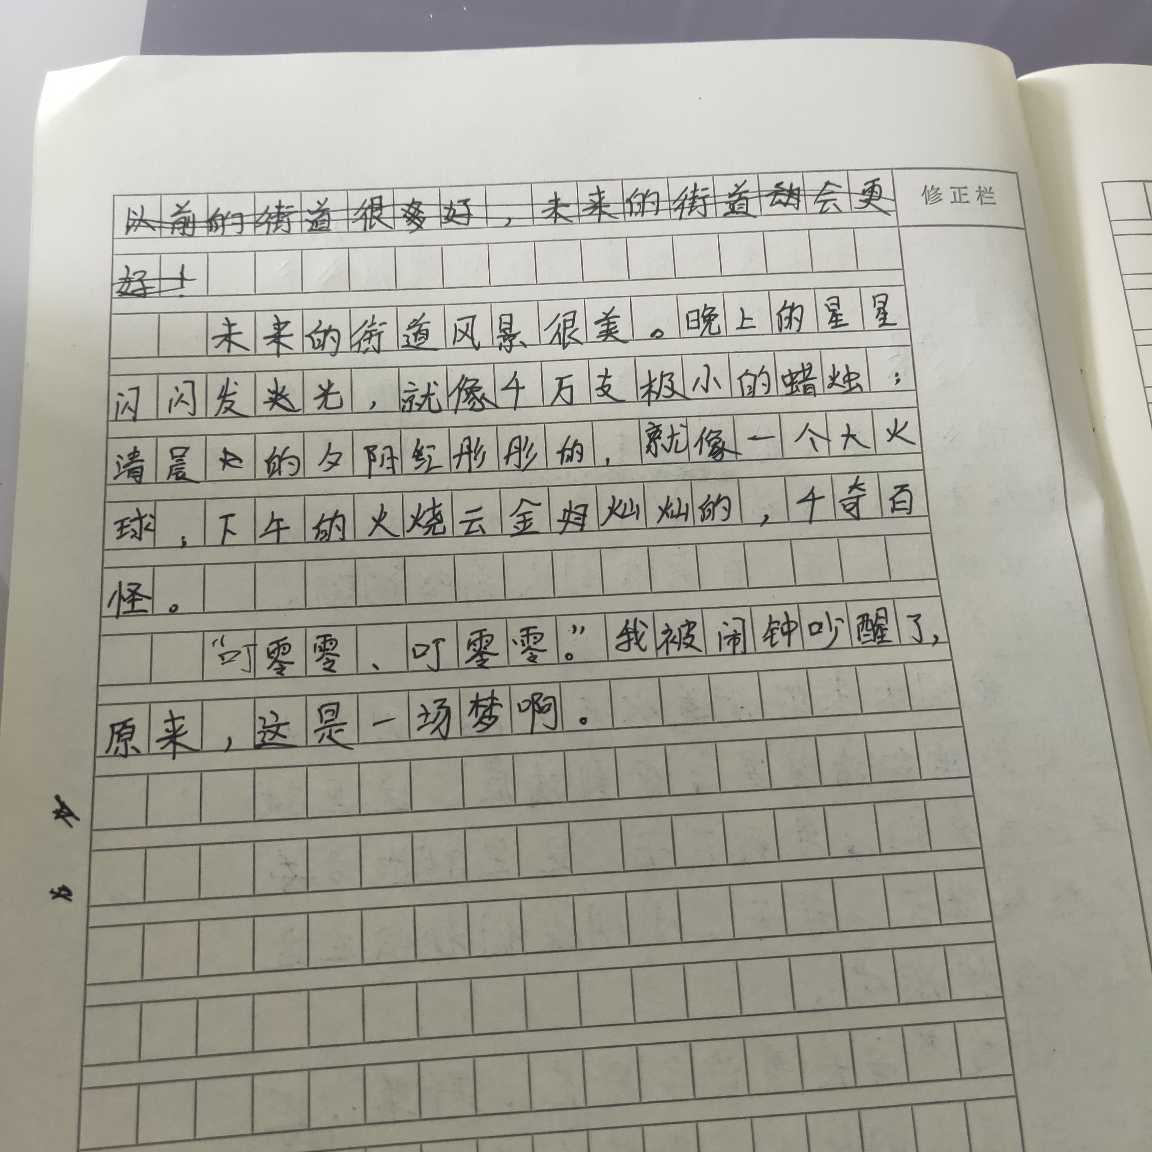 以前的街道很多好，未来的街道动会更
修正栏
好！
未来的街道风景很美。晚上的星星
闪闪发光，就像千万支极小的蜡烛；
清晨的夕阳红彤彤的，就像一个大火
球；下午的火烧云金灿灿的，千奇百
怪。
“叮零零、叮零零。”我被闹钟吵醒了，
原来，这是一场梦啊。